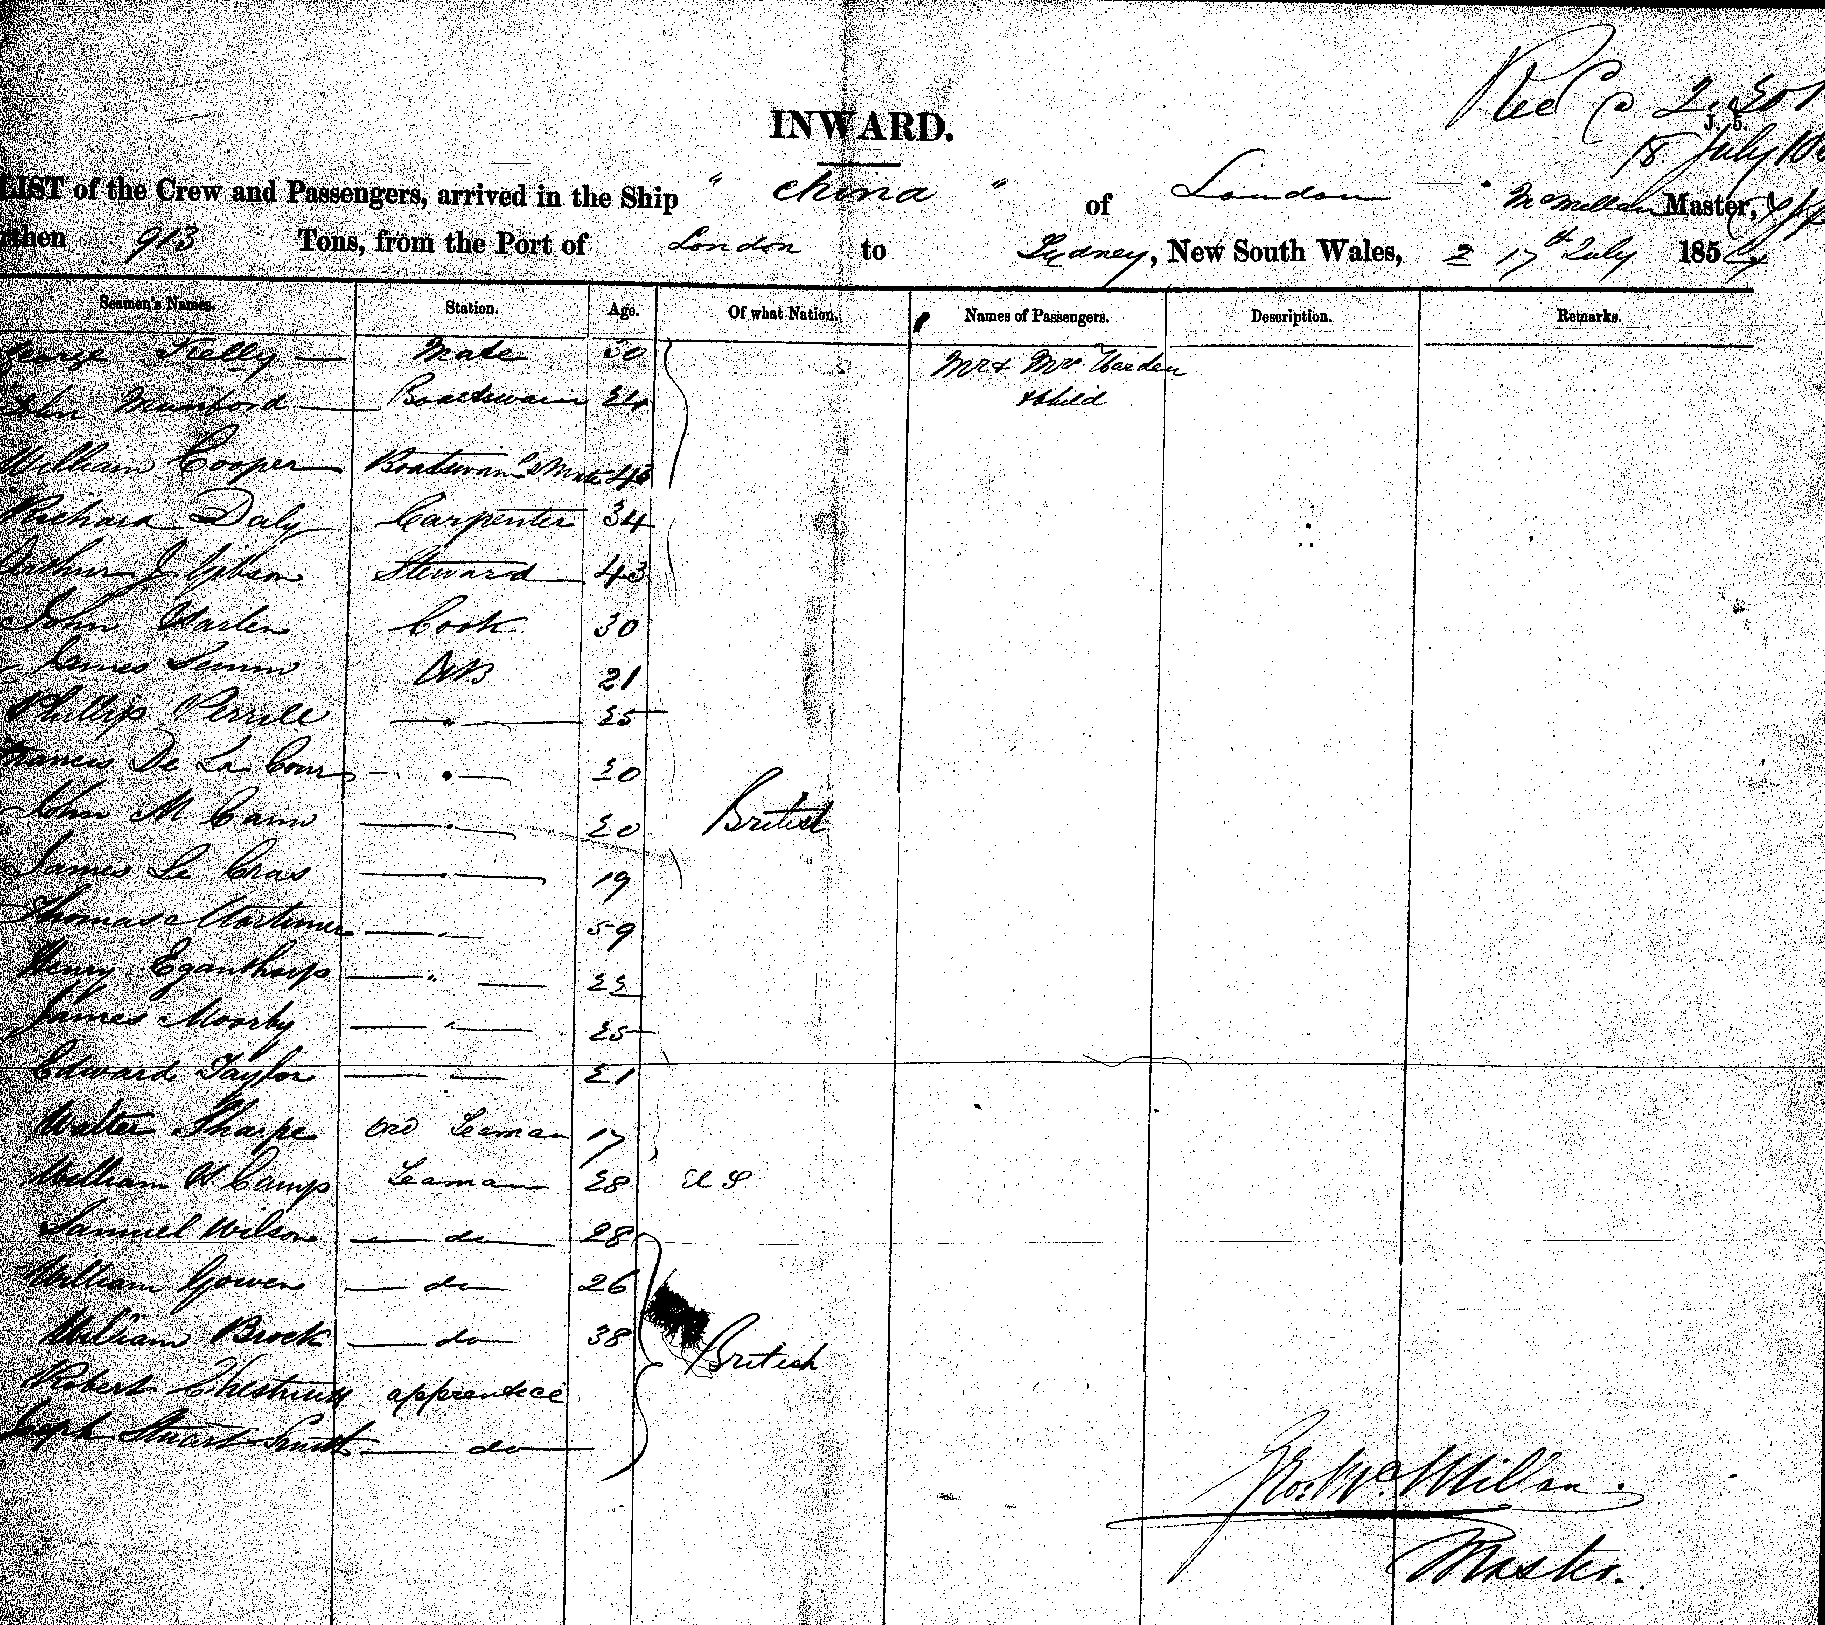 Recd @ 2.30
J. 5.
18 July
INWARD.
LIST of the Crew and Passengers, arrived in the Ship " China " of London McMillan Master,
then 913 Tons, from the Port of London to Sydney, New South Wales, 17th July 185
Seamen's Names. Station. Age. Of what Nation. Names of Passengers. Description. Remarks.
George Kelly Mate 30 Mr & Mrs Harden
John Munford Boatswain 24 & Child
William Cooper Boatswain's Mate 43
Richard Daly Carpenter 34
Arthur J. Gibson Steward 43
John Harlen Cook 30
James Lemm AB 21
Phillip Perrele — " — 25
Francis De La Cour — " — 20
John M Cann — " — 20 British
James Le Cras — " — 19
Thomas Mortimer — " — 59
Henry Eganthorp — " — 23
James Moorby — " — 25
Edward Taylor — " — 21
Walter Sharpe Ord Seaman 17
William W Camp Seaman 28 U S
Samuel Wilson — do — 28
William Gowen — do — 26
William Brock — do — 38 British
Robert Chestnutt apprentice
Joseph Stuart Smith — do —
Geo. McMillan.
Master.